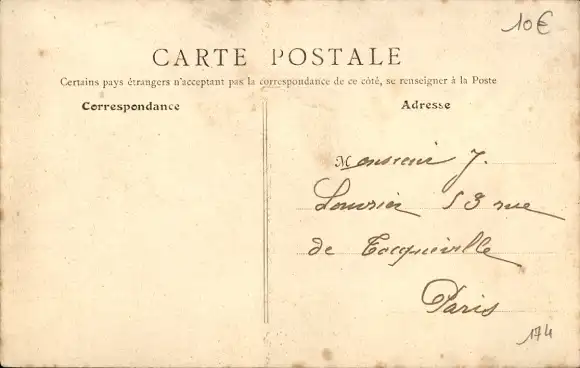 10€
CARTE POSTALE
Certains pays étrangers n'acceptant pas la correspondance de ce côté, se renseigner à la Poste
Correspondance
Adresse
Monsieur J.
53 rue
de Tocqueville
Paris
174